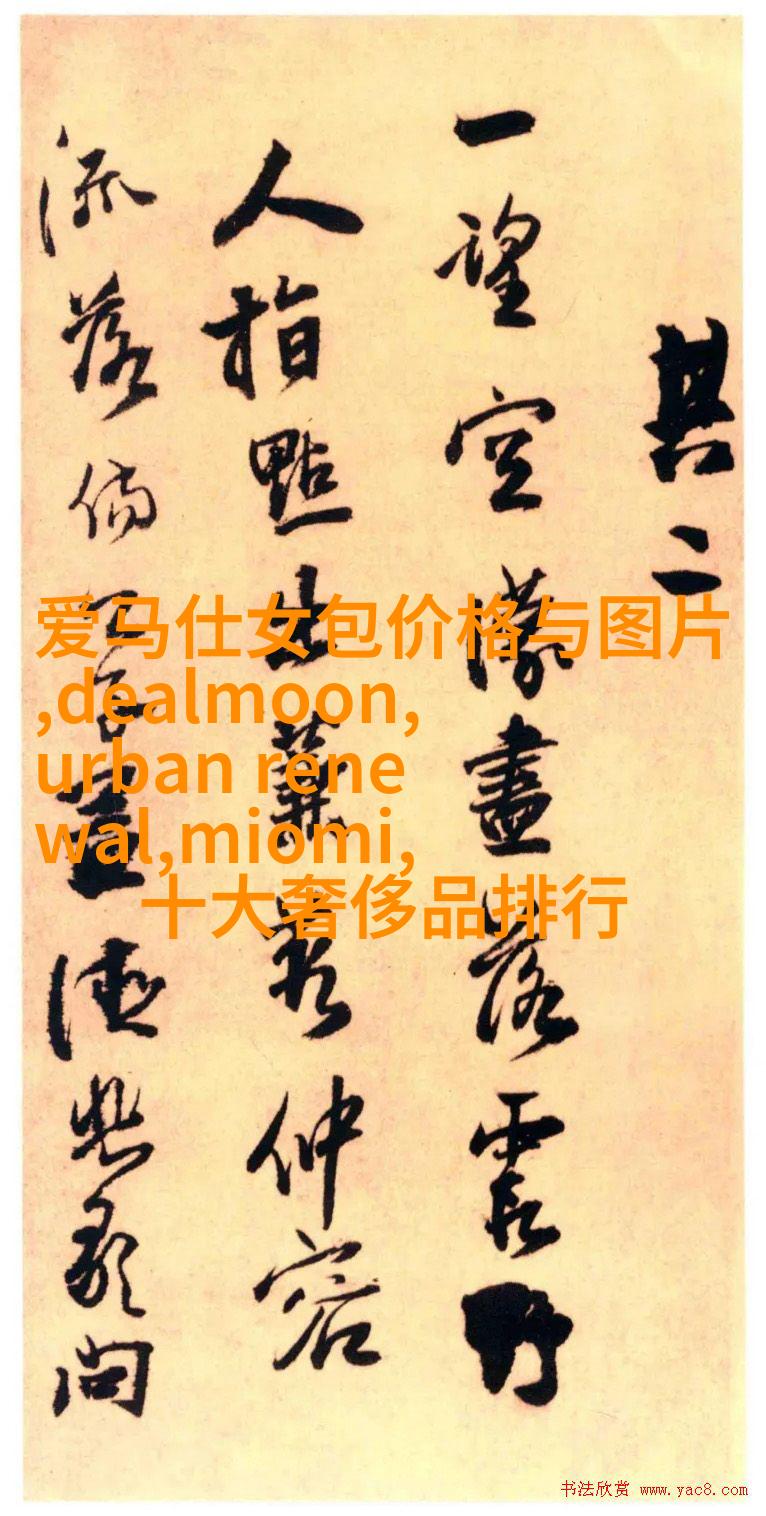 其二
一望空濛盡落野
人指點出仲容
流落倘問
爱马仕女包价格与图片
,dealmoon,
urban rene
wal,miomi,
十大奢侈品排行
书法欣赏 www.yac8.com